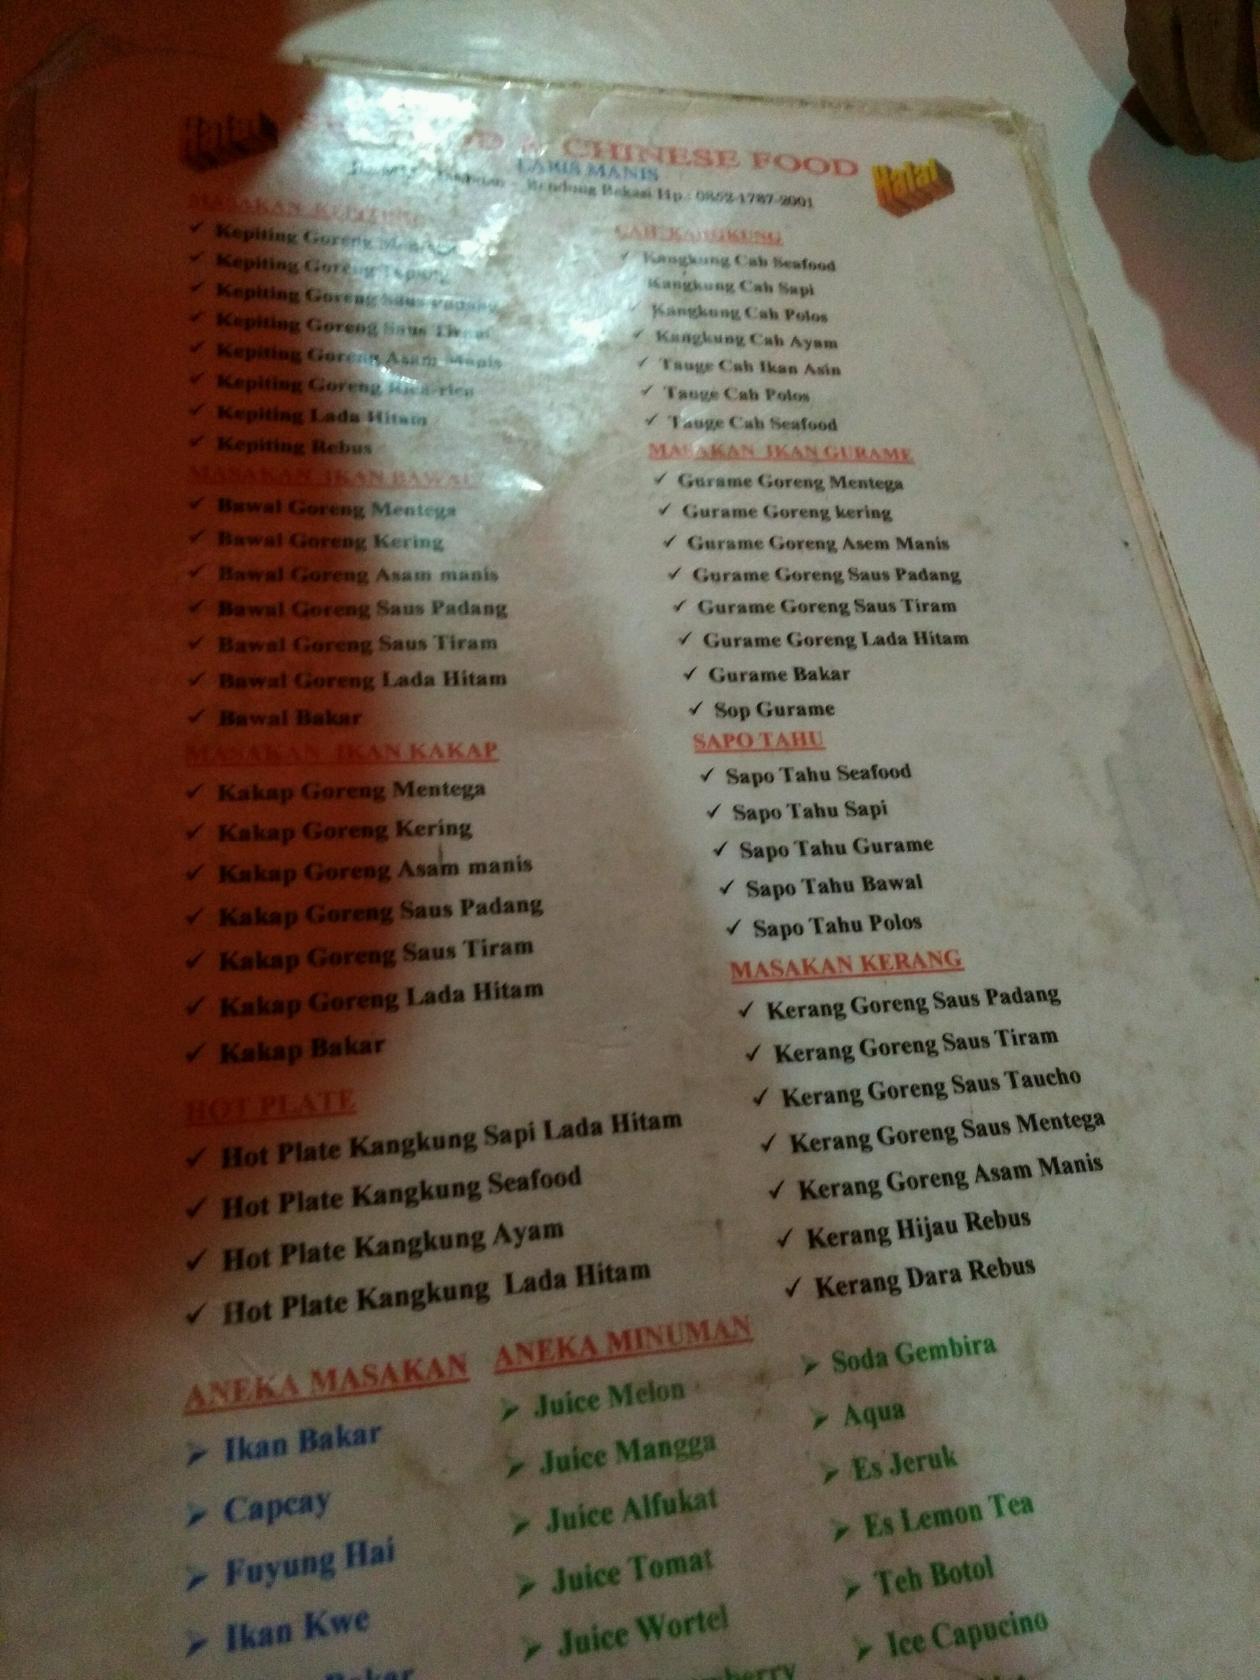 Halal
CHINESE FOOD
Halal
LARIS MANIS
Bekasi Hp : 0852-1787-2001
MASAKAN KEPITING
✓ Kepiting Goreng
✓ Kepiting Goreng Tepung
✓ Kepiting Goreng Saus Padang
✓ Kepiting Goreng Saus Tiram
✓ Kepiting Goreng Asam Manis
✓ Kepiting Goreng Rica-rica
✓ Kepiting Lada Hitam
✓ Kepiting Rebus
MASAKAN IKAN BAWAL
✓ Bawal Goreng Mentega
✓ Bawal Goreng Kering
✓ Bawal Goreng Asam manis
✓ Bawal Goreng Saus Padang
✓ Bawal Goreng Saus Tiram
✓ Bawal Goreng Lada Hitam
✓ Bawal Bakar
MASAKAN IKAN KAKAP
✓ Kakap Goreng Mentega
✓ Kakap Goreng Kering
✓ Kakap Goreng Asam manis
✓ Kakap Goreng Saus Padang
✓ Kakap Goreng Saus Tiram
✓ Kakap Goreng Lada Hitam
✓ Kakap Bakar
HOT PLATE
✓ Hot Plate Kangkung Sapi Lada Hitam
✓ Hot Plate Kangkung Seafood
✓ Hot Plate Kangkung Ayam
✓ Hot Plate Kangkung Lada Hitam
CAH KANGKUNG
✓ Kangkung Cah Seafood
Kangkung Cah Sapi
✓ Kangkung Cah Polos
✓ Kangkung Cah Ayam
✓ Tauge Cah Ikan Asin
✓ Tauge Cah Polos
✓ Tauge Cah Seafood
MASAKAN IKAN GURAME
✓ Gurame Goreng Mentega
✓ Gurame Goreng kering
✓ Gurame Goreng Asem Manis
✓ Gurame Goreng Saus Padang
✓ Gurame Goreng Saus Tiram
✓ Gurame Goreng Lada Hitam
✓ Gurame Bakar
✓ Sop Gurame
SAPO TAHU
✓ Sapo Tahu Seafood
✓ Sapo Tahu Sapi
✓ Sapo Tahu Gurame
✓ Sapo Tahu Bawal
✓ Sapo Tahu Polos
MASAKAN KERANG
✓ Kerang Goreng Saus Padang
✓ Kerang Goreng Saus Tiram
✓ Kerang Goreng Saus Taucho
✓ Kerang Goreng Saus Mentega
✓ Kerang Goreng Asam Manis
✓ Kerang Hijau Rebus
✓ Kerang Dara Rebus
ANEKA MASAKAN
➢ Ikan Bakar
➢ Capcay
➢ Fuyung Hai
➢ Ikan Kwe
Bakar
ANEKA MINUMAN
➢ Juice Melon
➢ Juice Mangga
➢ Juice Alfukat
➢ Juice Tomat
➢ Juice Wortel
➢ Soda Gembira
➢ Aqua
➢ Es Jeruk
➢ Es Lemon Tea
➢ Teh Botol
➢ Ice Capucino